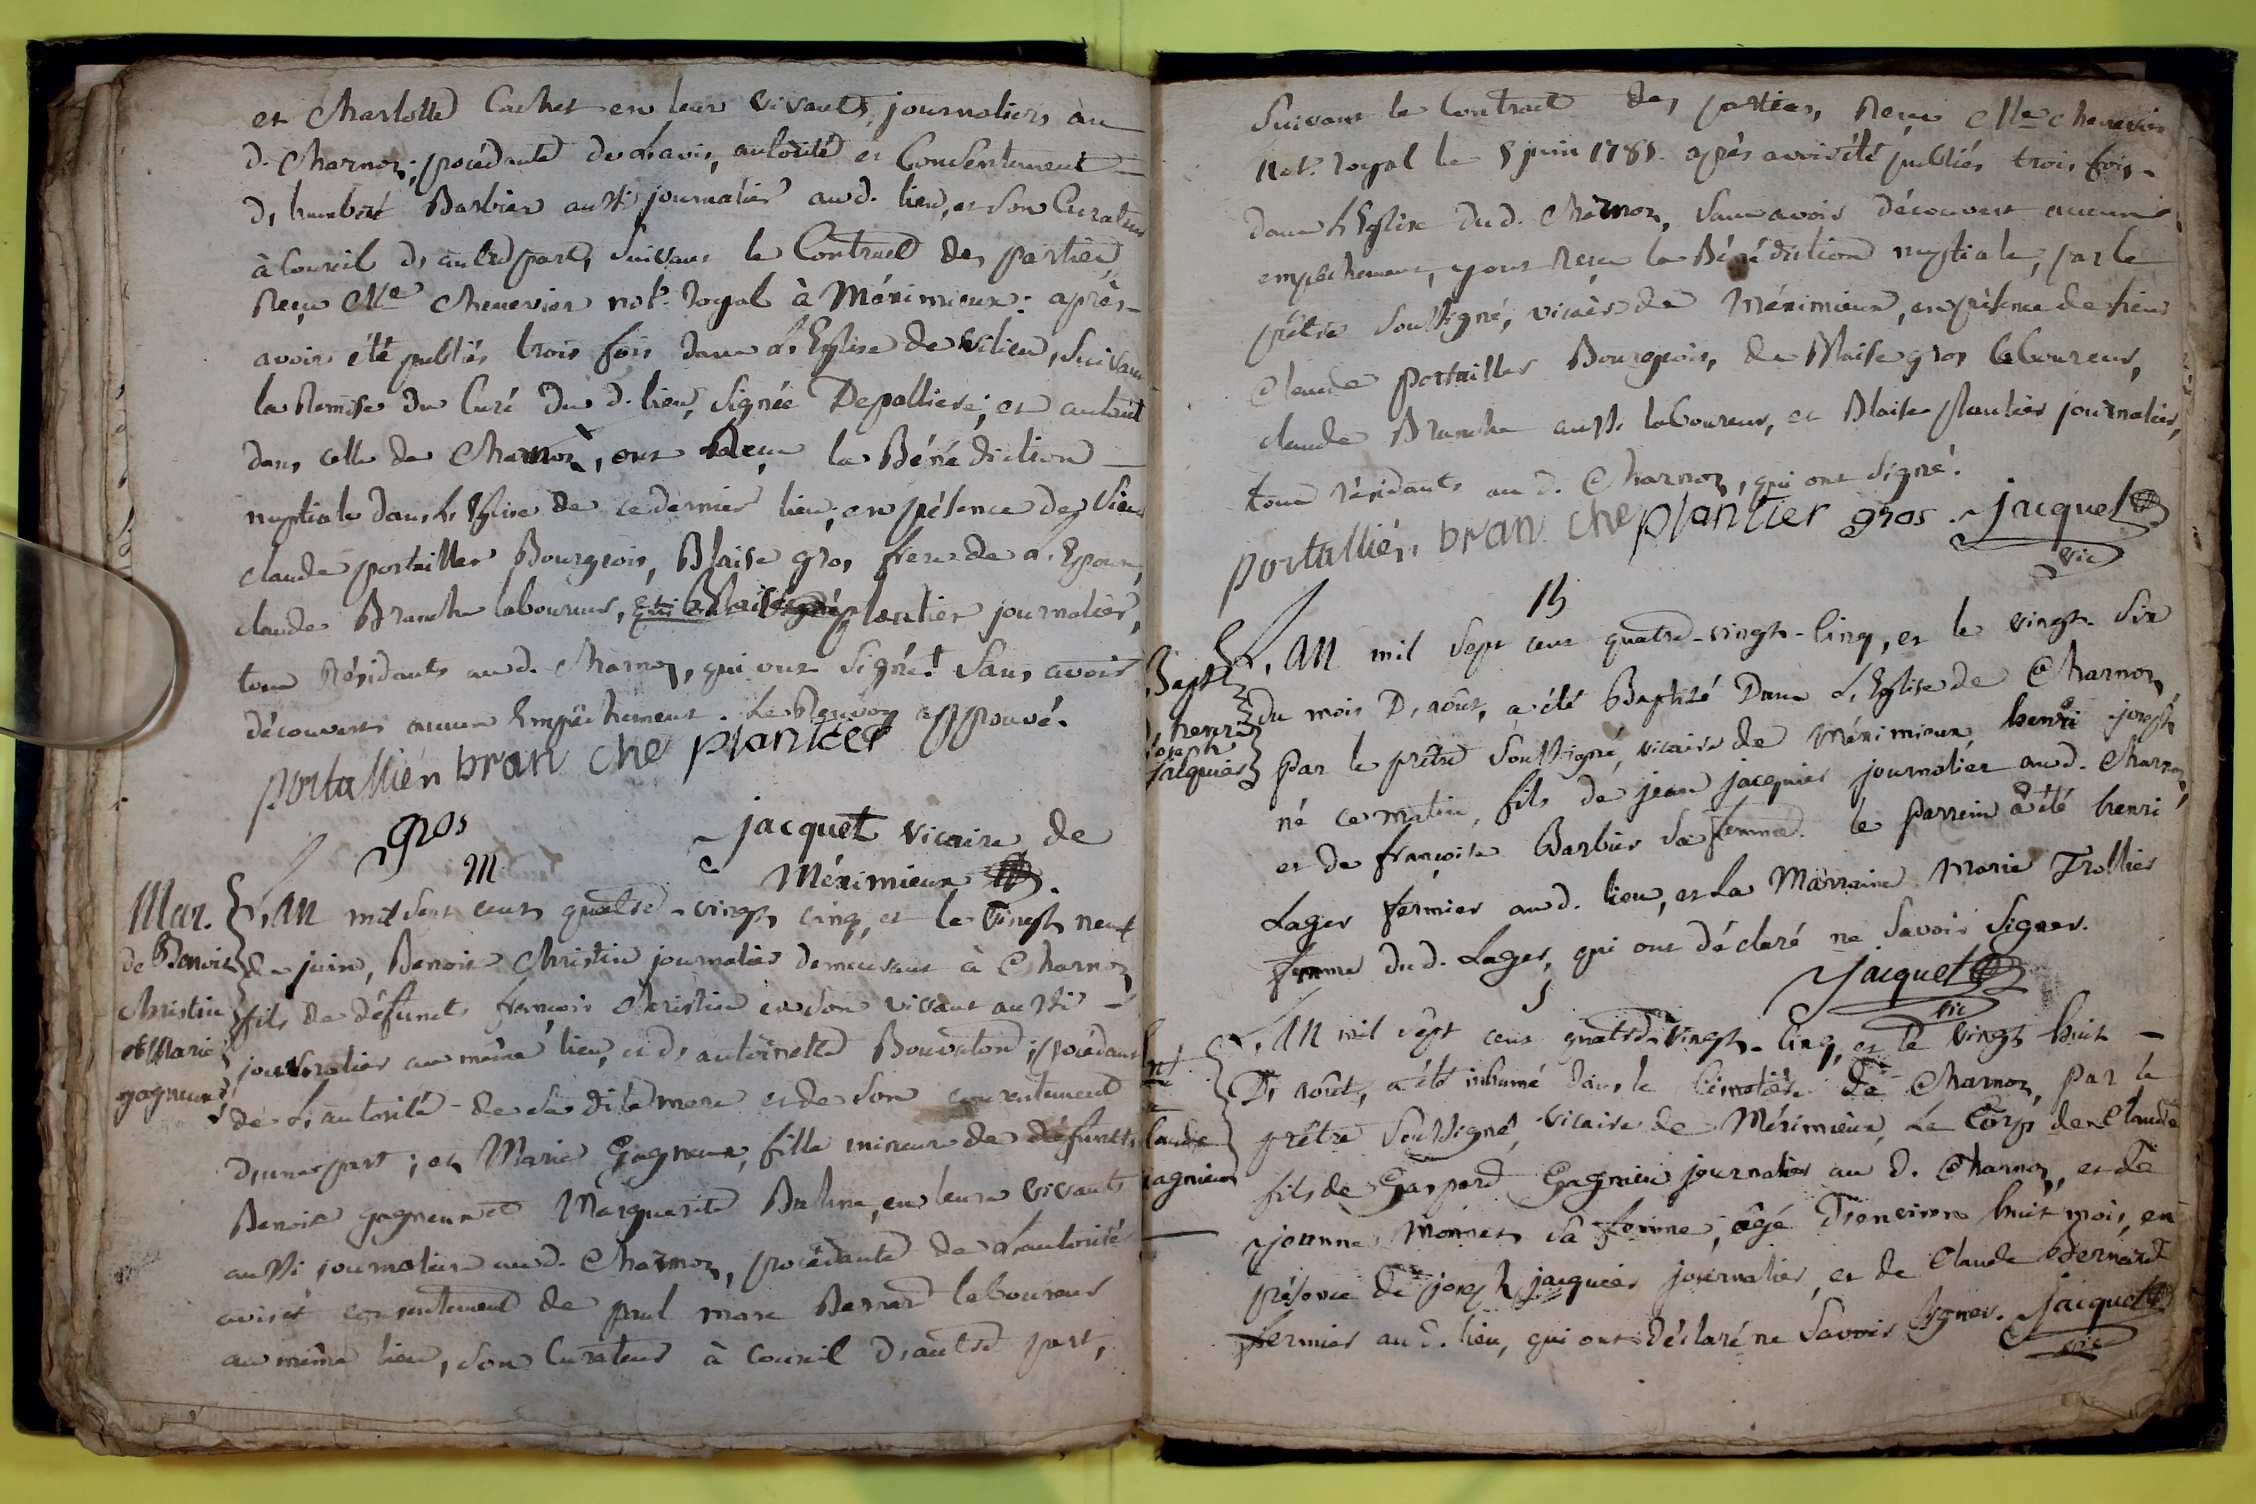 et Charlotte Cachet en leur vivants, journaliers au
d. Charnoz; procédante de L'avis, autorité et Consentement
d'humbert Barbier aussi journalier aud. lieu, et son Curateur
à Conseil d'autre part, Suivant le Contract des parties
Reçu Me Chenevier not. royal à Méximieux: après
avoir été publiés trois fois dans L'Eglise de Vilieu, Suivant
la Remise du Curé du d. lieu, Signée Depalliere; et autant
dans celle de Charnoz, ont Reçu la Bénédiction
nuptiale dans L'Eglise de ce dernier lieu, en présence des Sieurs
claude portallier Bourgeois, Blaise gros frere de L'Epoux,
claude Branche laboureur, et Blaise plantier journalier,
tous Résidants aud. Charnoz, qui ont Signé. † Sans avoir
découvert aucun Empêchement. Le Renvoy approuvé.
portallier bran che plantier
gros
jacquet vicaire de
Méximieux
M
Mar.
de Benoit
Christin
et Marie
gagneux
L'AN mil Sept cent quatre-vingt cinq, et le Vingt neuf
de juin, Benoit Christin journalier demeurant à Charnoz
fils de défunt françois Christin en son vivant aussi
journalier au même lieu, et d'antoinette Bouvaton; procédant
de L'autorité de Sa dite mere et de Son consentement
d'une part; et Marie Gagneux, fille mineure de défunts
Benoit gagneux et Marguerite, en leurs vivants
aussi journaliers aud. Charnoz, procédante de L'autorité
avis et consentement de marc Bernard laboureur
au même lieu, Son Curateur à Conseil d'autre part,
Suivant le Contract des parties, Reçu Me Chenevier
Not. royal le 5 juin 1785. après avoir été publiés trois fois
dans L'Eglise du d. Charnoz, Sans avoir découvert aucun
empêchement, y ont Reçu la Bénédiction nuptiale, par le
prêtre Soussigné, vicaire de Méximieux, en présence de Sieur
Claude portallier Bourgeois, de Blaise gros laboureur,
claude Branche aussi laboureur, et Blaise plantier journalier,
tous résidants au d. Charnoz, qui ont Signé.
portallier bran che plantier gros. jacquet
vic
B
Bapt.
d'henri
joseph
jacquier
L'AN mil Sept cent quatre-vingt-Cinq, et le vingt-Six
du mois D'août, a été Baptisé Dans L'Eglise de Charnoz
par le prêtre Soussigné, vicaire de Méximieux henri joseph
né ce matin, fils de jean jacquier journalier aud. Charnoz,
et de françoise Barbier Sa femme. le parrein a été henri
Lager fermier aud. lieu, et La Marraine Marie Trollier
femme du d. Lager, qui ont déclaré ne Savoir Signer.
jacquet
vic
S
claude
gagnieux
L'AN mil sept cent quatre-Vingt-Cinq, et le Vingt-huit
D'août, a été inhumé dans le Cimetière de Charnoz, par le
prêtre Soussigné, Vicaire de Méximieux, Le Corps de Claude
fils de Gaspard Gagnieu journalier au d. Charnoz, et de
jeanne Monnet Sa femme, âgé D'environ huit mois, en
présence de joseph jacquier journalier, et de Claude Bernard
fermier au d. lieu, qui ont déclaré ne Savoir Signer. jacquet
vic